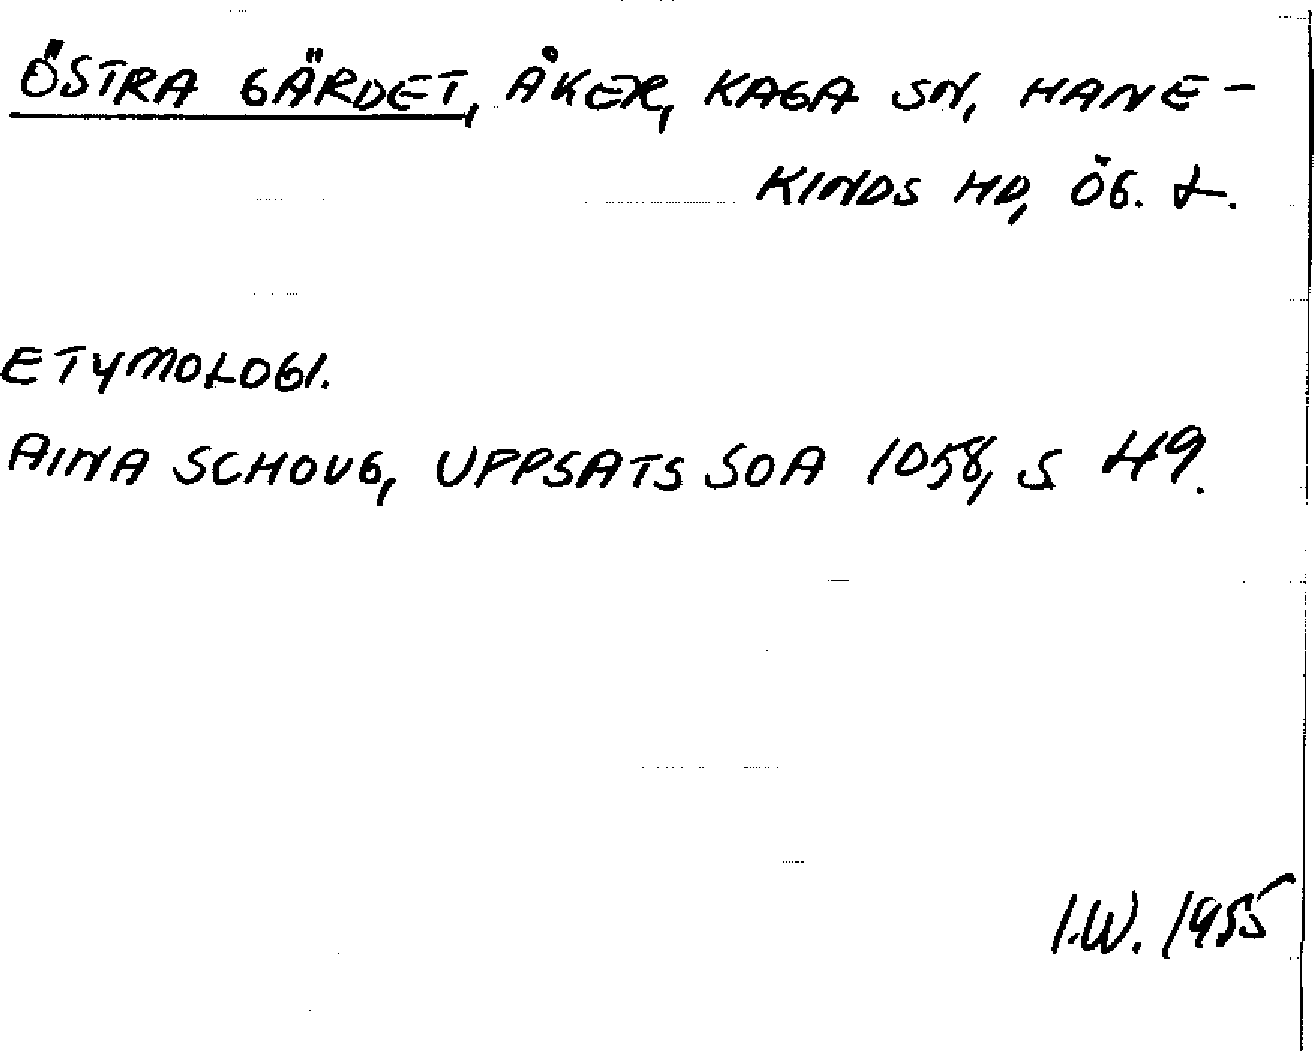 ÖSTRA GÄRDET, ÅKER, KAGA SN, HANE-
KINDS HD, ÖG. L.
ETYMOLOGI.
AINA SCHOUG, UPPSATS SOA 1058, S 49.
I.W. 1955